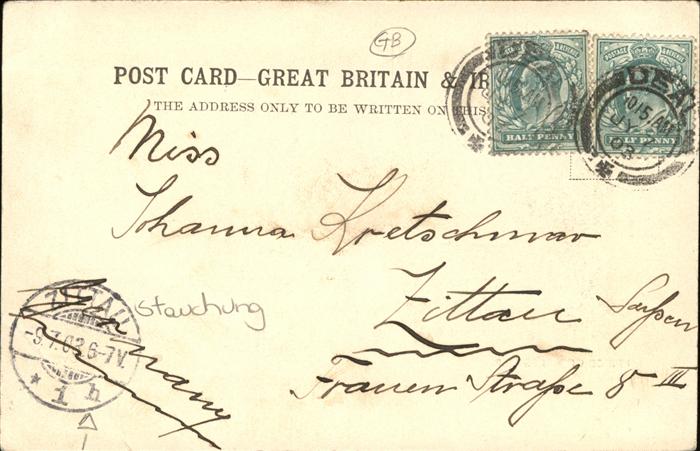 GB
POST CARD—GREAT BRITAIN & IR
THE ADDRESS ONLY TO BE WRITTEN ON THIS
POSTAGE REVENUE
HALF PENNY
POSTAGE REVENUE
HALF PENNY
DEAL
10/15 AM
JY
03
Miss
Johanna Kretschmar
Zittau Sachsen
Frauen Straße 8 III
Germany
Stauchung
ZITTAU
-9.7.03.6-7V.
* 1 h